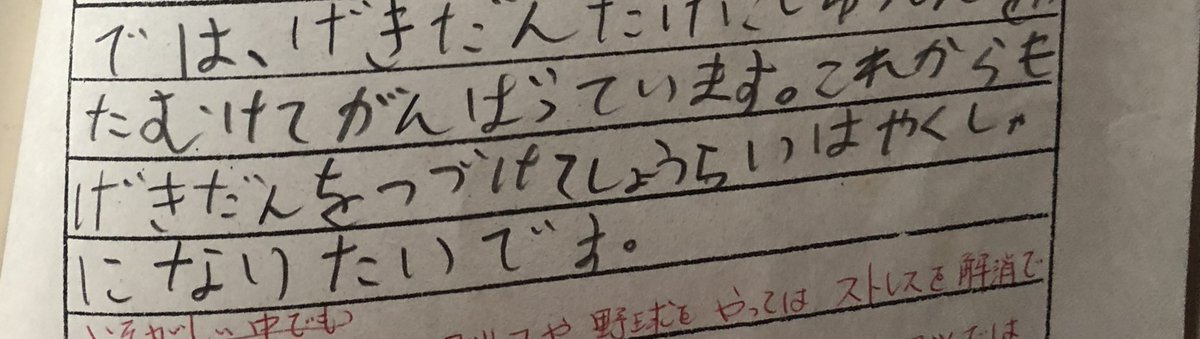 では、げきだんだけに
たむけてがんばっています。これからも
げきだんをつづけてしょうらいはやくしゃ
になりたいです。
いそがしい中でも
や野球をやってはストレスを解消で
では